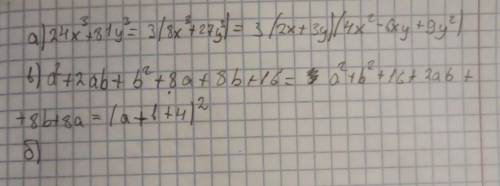 а) 24x³+81y³ = 3(8x³+27y³) = 3(2x+3y)(4x²-6xy+9y²)
в) a²+2ab+b²+8a+8b+16 = a²+b²+16+2ab+
+8b+8a = (a+b+4)²
б)